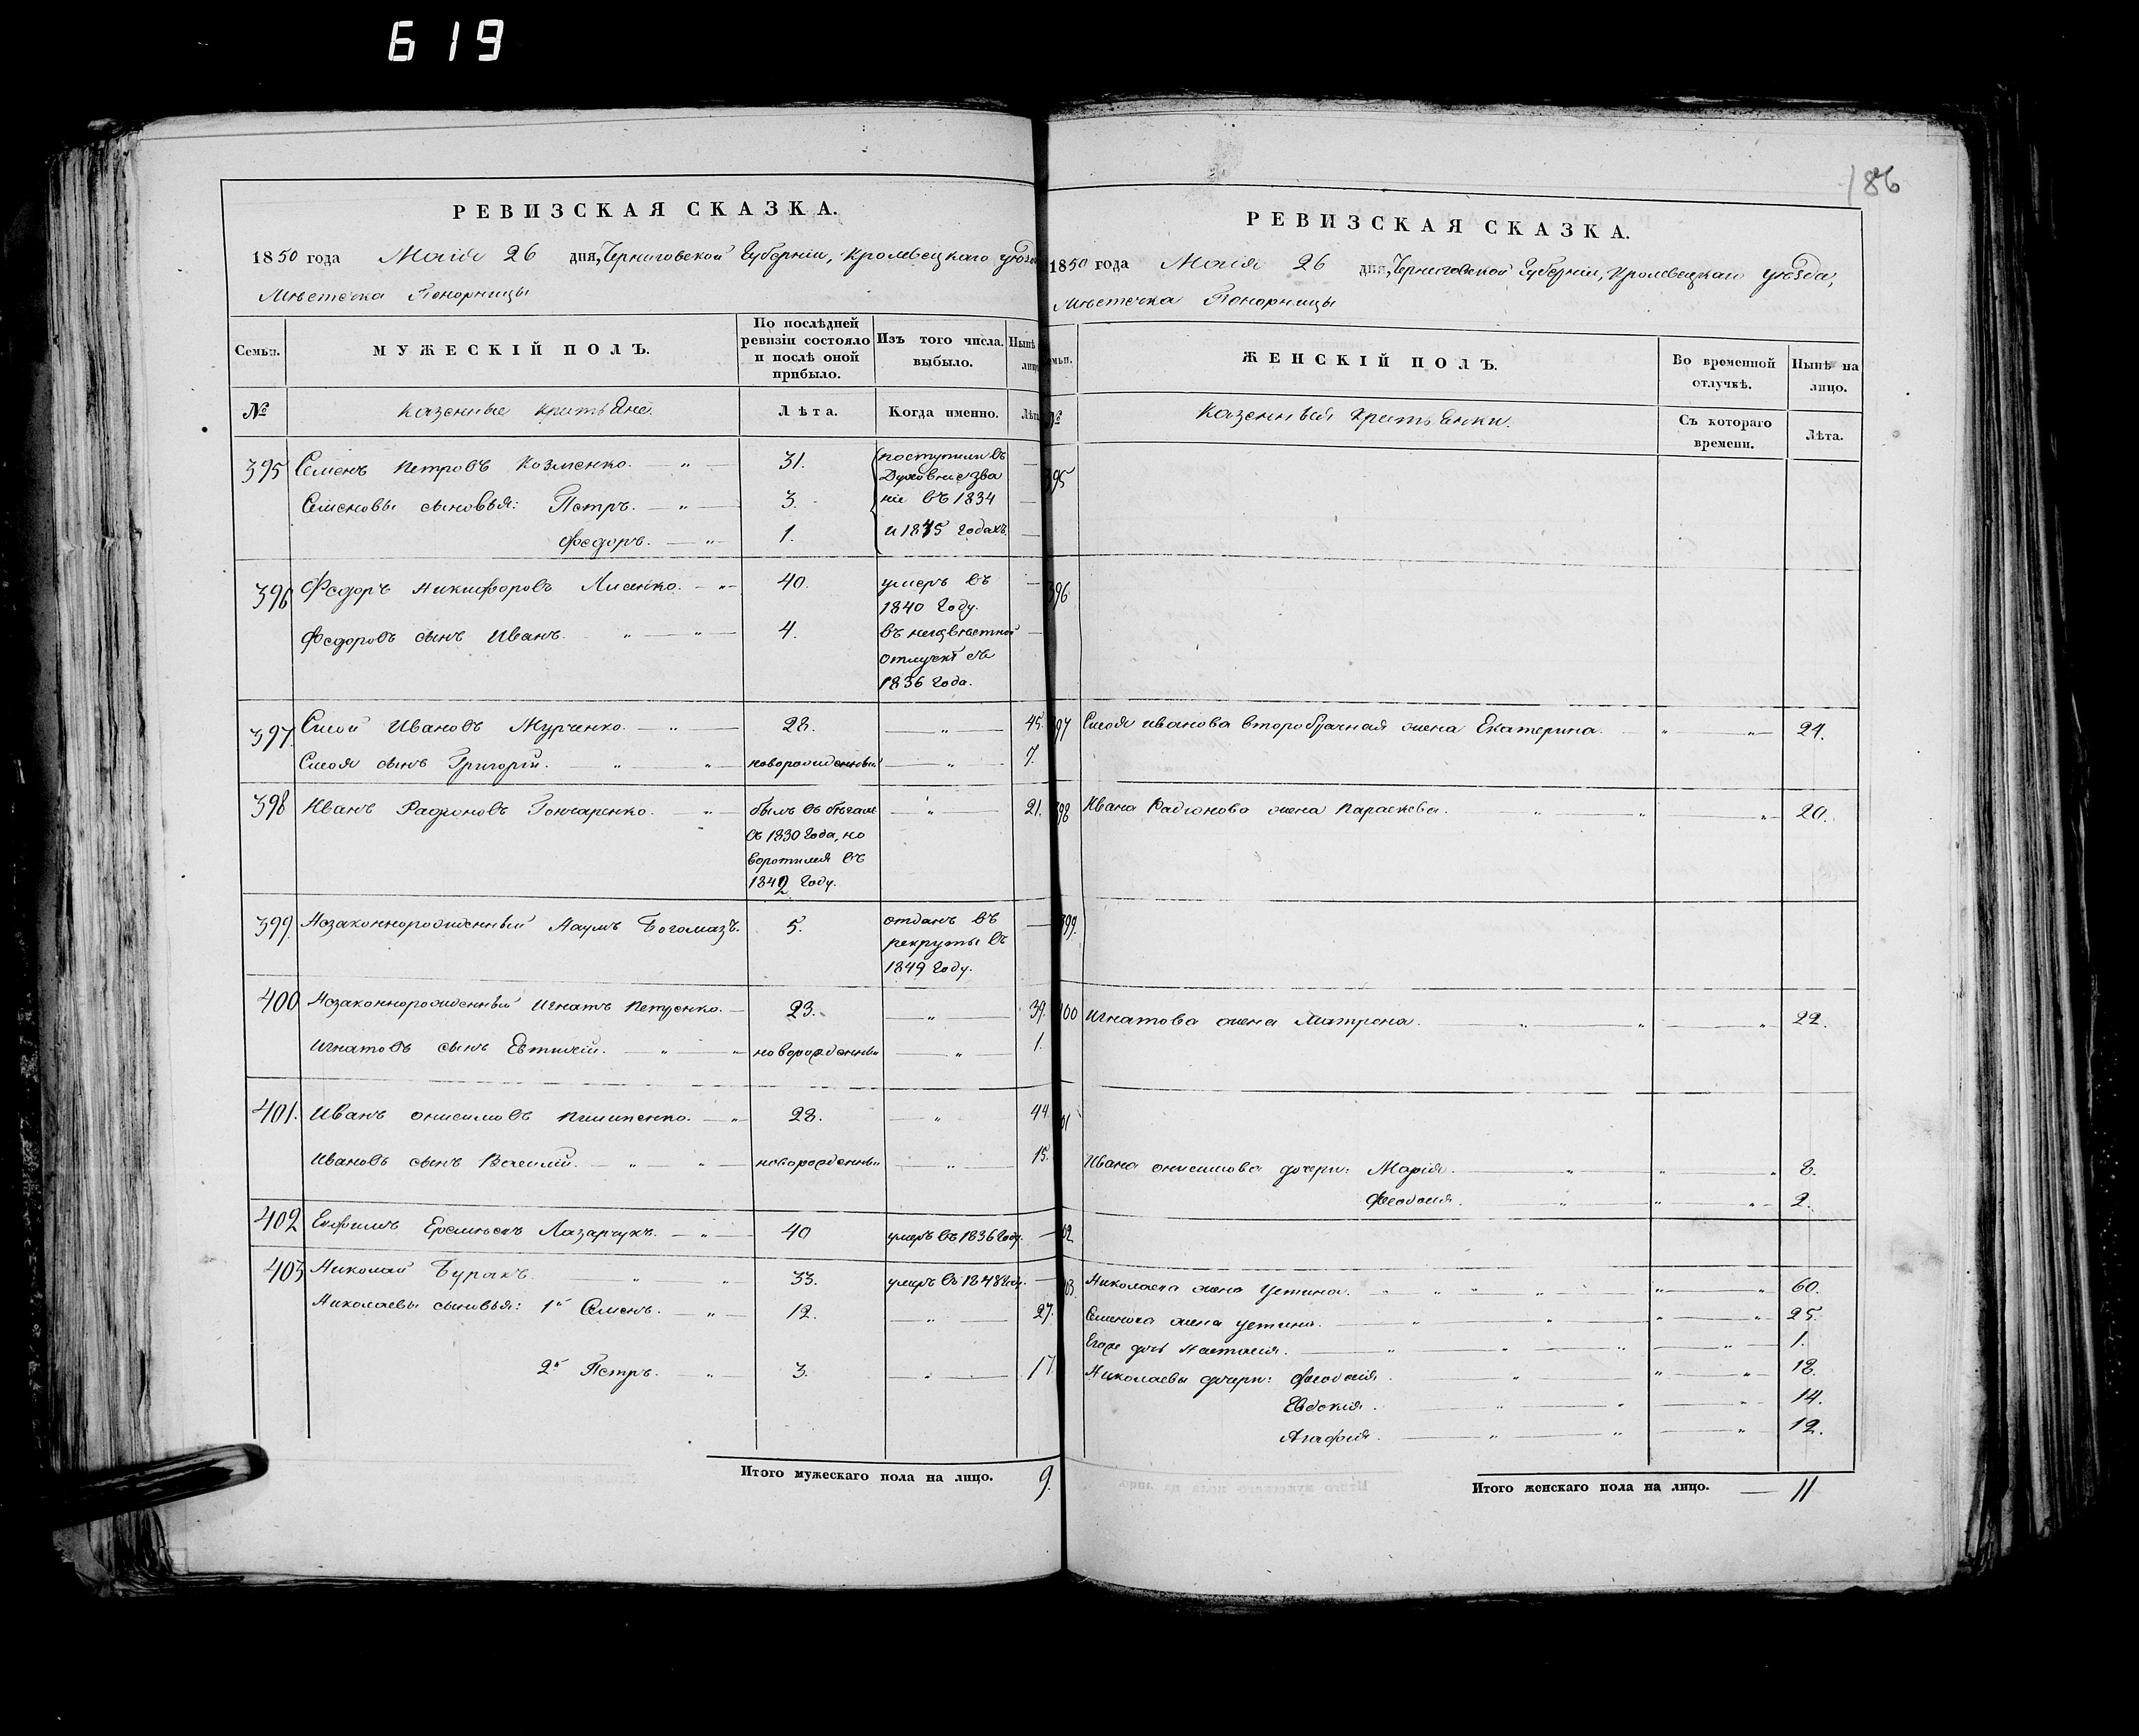 619
186
РЕВИЗСКАЯ СКАЗКА.
1850 года Маія 26 дня, Черниговской Губерніи, Кролевецкаго уезда
Мѣстечка Понорницы
Семьи. МУЖЕСКІЙ ПОЛЪ. По послѣдней ревизіи состояло и послѣ оной прибыло. Изъ того числа выбыло. Нынѣ лицо
№ Казенные крестьяне. Лѣта. Когда именно. Лѣта
395 Семенъ Петровъ Козменко. — „ — 31. поступили въ —
Духовное зва
Семеновы сыновья: Петръ. — „ — 3. ніе въ 1834 —
Федоръ. — „ 1. и 1845 годахъ. —
396 Федоръ Никифоровъ Лисенко. — „ — 40. умеръ въ —
1840 году.
Федоровъ сынъ Иванъ. „ — „ — 4. въ неизвѣстной —
отлучкѣ съ
1836 года.
397. Сисой Ивановъ Мурченко. — „ — 28. — „ — 45.
Сисоя сынъ Григорій. — „ — „ новорожденный — „ — 7.
398 Иванъ Радіоновъ Гончаренко. — „ — былъ въ бѣгахъ — „ — 21.
съ 1830 года, но
воротился въ
1842 году.
399. Незаконнорожденный Наумъ Богомазъ. 5. отданъ въ —
рекруты въ
1849 году.
400 Незаконнорожденный Игнатъ Петренко. — 23. — „ — 39.
Игнатовъ сынъ Евтихій. — „ — „ новорожденный — „ — 1.
401. Иванъ Онисимовъ Пилипенко. — „ 28. — „ — 44.
Ивановъ сынъ Василій. — „ — „ новорожденный — „ — 15.
402 Ефимъ Лазарчукъ. — „ — 40 умеръ въ 1836 году. —
403 Николай Буракъ. „ „ 33. умеръ въ 1848 году. —
Николаевы сыновья: 1й Семенъ. — „ — 12. — „ — 27.
2й Петръ. „ — 3. — „ — 17
Итого мужескаго пола на лицо. 9.
РЕВИЗСКАЯ СКАЗКА.
1850 года Маія 26 дня, Черниговской Губерніи, Кролевецкаго уезда,
Мѣстечка Понорницы
ЖЕНСКІЙ ПОЛЪ. Во временной отлучкѣ. Нынѣ на лицо.
№ Казенныя крестьянки. Съ котораго времени. Лѣта.
395
396
397 Сисоя Иванова второбрачная жена Екатерина. — „ — „ — 24.
398 Ивана Радіонова жена Параскева. „ — „ — „ 20.
399.
400 Игнатова жена Матрона. — „ — „ — „ 22.
401
Ивана Онисимова дочери: Марія. „ „ — „ 8.
Феодосія. „ „ — „ 2.
402
403. Николаева жена Устина. „ „ „ — „ 60.
Семенова жена Устина. — „ — „ — „ — „ 25.
Егоже дочь Настасія. — „ — „ — „ — „ — 1.
Николаевы дочери: Феодосія. „ „ — „ 18.
Евдокія. — „ — „ — „ 14.
Агафія. — „ — „ — „ 12.
Итого женскаго пола на лицо. — 11